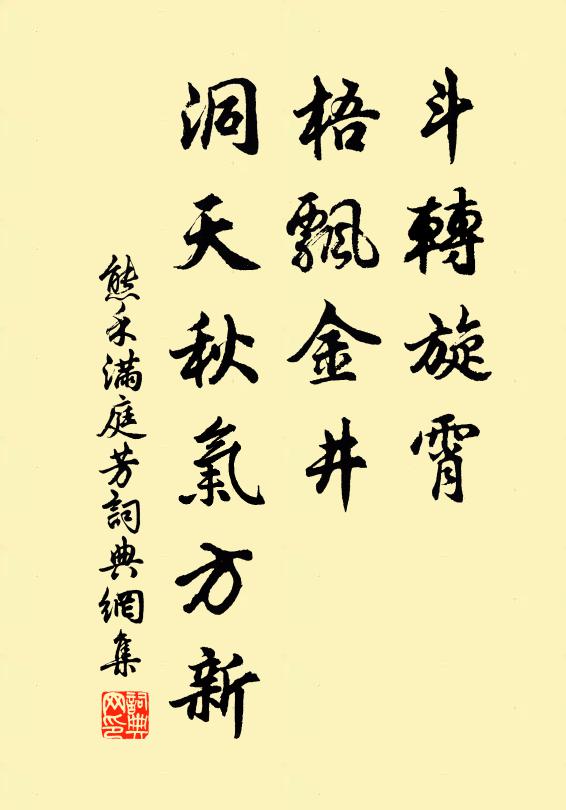 斗轉旋霄
梧飄金井
洞天秋氣方新
熊禾滿庭芳詞典網集
詞典网印